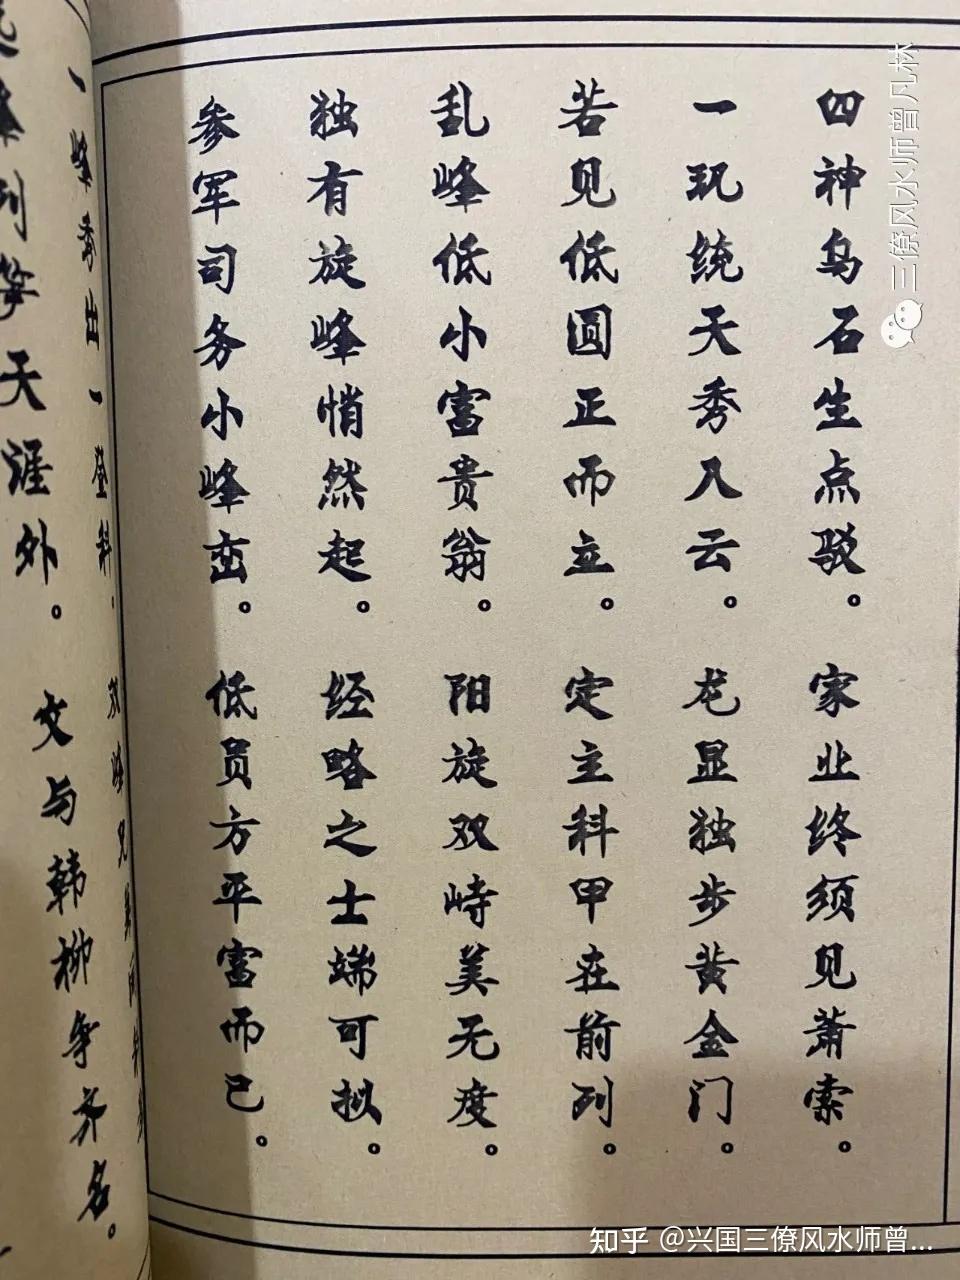 四神乌石生点驳。家业终须见萧索。
一玑统天秀入云。龙显独步黄金门。
若见低圆正而立。定主科甲在前列。
乱峰低小富贵翁。阳旋双峙美无度。
独有旋峰悄然起。经略之士端可拟。
参军司务小峰峦。低员方平富而已。
一峰秀出一登科.双峰兄弟
峰列笋天涯外。文与韩柳争齐名。
三僚风水师曾凡林
知乎 @兴国三僚风水师曾...